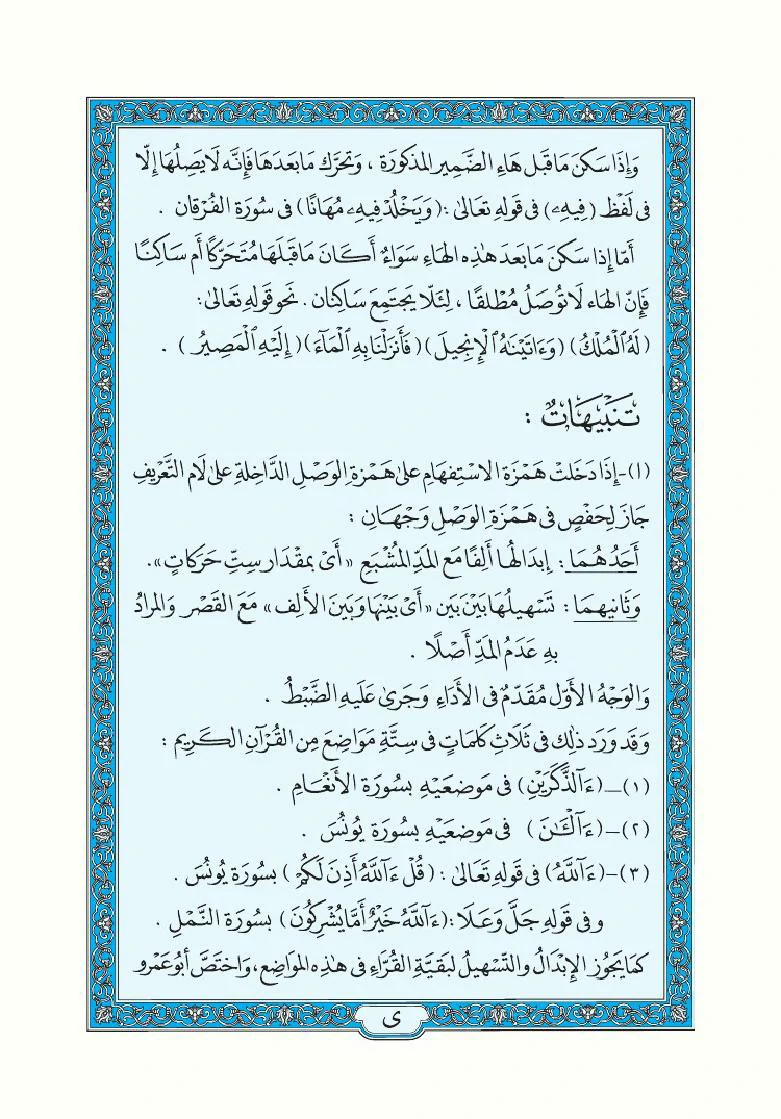 وَإِذَا سَكَنَ مَا قَبْل هَاءِ الضَّمِير المَذكورَة ، وَتحَرَّك مَا بَعدَهَا فَإِنَّه لَا يَصِلُهَا إلّا
فى لَفْظ (فِيهِۦ) فى قَولِهِ تَعَالىٰ : (وَيَخْلُدْ فِيهِۦ مُهَانًا) فى سُورَة الفُرقان .
أمّا إذا سَكَنَ مَا بَعدَ هٰذِه الهَاءِ سَوَاءٌ أَكَانَ مَا قَبْلَهَا مُتَحَرِّكًا أم سَاكِنًا
فَإنّ الهاء لَا تُوصَلُ مُطْلَقًا ، لِئَلّا يَجتَمِعَ سَاكِنان . نَحو قَولِهِ تعَالىٰ :
(لَهُ ٱلْمُلْكُ) (وَءَاتَيْنَٰهُ ٱلْإِنجِيلَ) (فَأَنزَلْنَا بِهِ ٱلْمَآءَ) (إِلَيْهِ ٱلْمَصِيرُ) .
تَنبِيهَاتٌ :
(١)-إِذَا دَخَلَتْ هَمْزَة الاسْتِفهَام عَلىٰ هَمزةِ الوَصْلِ الدَّاخِلةِ عَلىٰ لَام التَّعْريفِ
جَازَ لِحَفْصٍ فى هَمْزَةِ الوَصْلِ وَجْهَانِ :
أَحَدُهُمَا : إبدَالُها أَلِفًا مَعَ المَدِّ المُشْبَعِ «أَىْ بمقْدَار سِتِّ حَرَكَاتٍ».
وَثَانِيهِمَا : تَسْهِيلُهَا بَيْنَ بَين «أَىْ بَيْنَهَا وَبَينَ الأَلِف» مَعَ القَصْر وَالمرادُ
بِهِ عَدَمُ المَدِّ أَصْلًا .
وَالوَجْهُ الأَوَّل مُقَدّمٌ فى الأَدَاءِ وَجَرىٰ عَلَيهِ الضَّبْطُ .
وَقَد وَرَدَ ذٰلِك فى ثَلَاثِ كَلِمَاتٍ فى سِتَّةِ مَوَاضِعَ مِن القُرْآنِ الكَرِيمِ :
(١)_(ءَآلذَّكَرَيْنِ) فى مَوضعَيْهِ بسُورَة الأَنْعَامِ .
(٢)-(ءَآلْـَٰٔنَ) فى مَوضعَيْهِ بسُورَة يُونُسَ .
(٣)-(ءَآللَّهُ) فى قَولِهِ تَعَالىٰ : (قُلْ ءَآللَّهُ أَذِنَ لَكُمْ) بسُورَة يُونُسَ .
وفى قَولِهِ جَلَّ وَعَلَا : (ءَآللَّهُ خَيْرٌ أَمَّا يُشْرِكُونَ) بسُورَة النَّمْلِ .
كَمَا يَجُوز الإِبْدَالُ والتَّسْهِيلُ لبَقيَّةِ القُرَّاءِ فى هٰذِهِ المَوَاضِع، وَاختَصَّ أبُو عَمْرو
ى